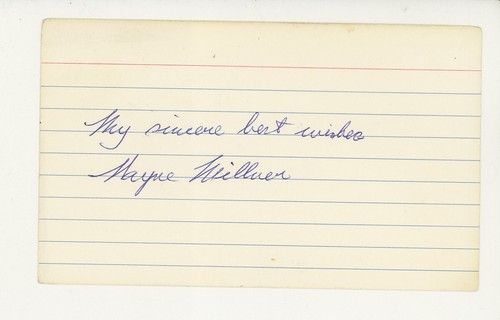 My sincere best wishes
Wayne Millner